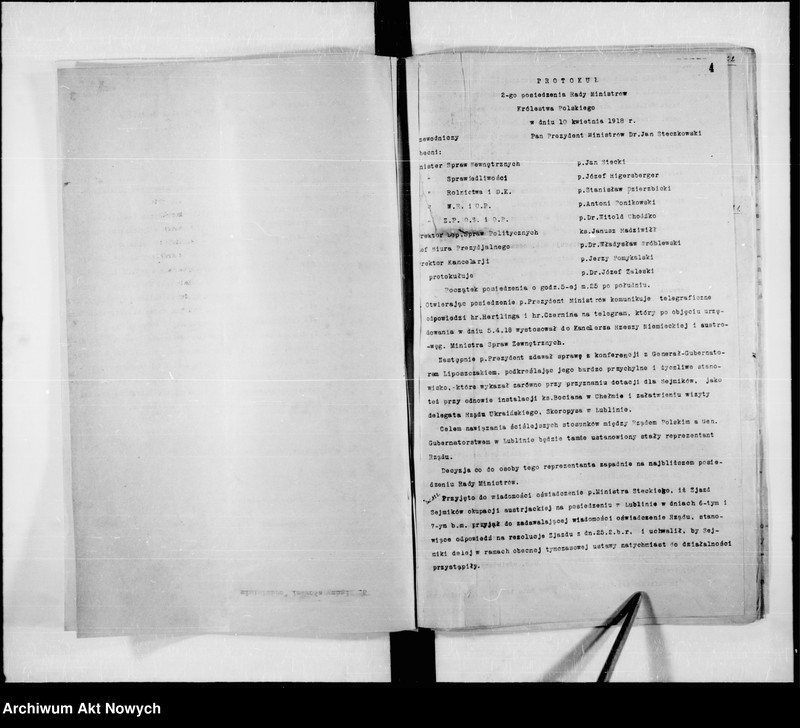 4
P R O T O K U Ł
2-go posiedzenia Rady Ministrów
Królestwa Polskiego
w dniu 10 kwietnia 1918 r.
zewodniczy Pan Prezydent Ministrów Dr.Jan Steczkowski
becni:
nister Spraw Wewnętrznych p.Jan Stecki
" Sprawiedliwości p.Józef Higersberger
" Rolnictwa i D.K. p.Stanisław Dzierzbicki
" W.R. i O.P. p.Antoni Ponikowski
" Z.P. O.S. i O.P. p.Dr.Witold Chodźko
rektor Dep.Spraw Politycznych ks.Janusz Radziwiłł
ef Biura Prezydjalnego p.Dr.Władysław Wróblewski
rektor Kancelarji p.Jerzy Pomykalski
protokułuje p.Dr.Józef Zaleski
Początek posiedzenia o godz.5-ej m.25 po południu.
Otwierając posiedzenie p.Prezydent Ministrów komunikuje telegraficzne
odpowiedzi hr.Hertlinga i hr.Czernina na telegram, który po objęciu urzę-
dowania w dniu 5.4.18 wystosował do Kanclerza Rzeszy Niemieckiej i austro-
-węg. Ministra Spraw Zewnętrznych.
Następnie p.Prezydent zdawał sprawę z konferencji z Generał-Gubernato-
rem Liposzczakiem, podkreślając jego bardzo przychylne i życzliwe stano-
wisko, które wykazał zarówno przy przyznaniu dotacji dla Sejmików, jako
też przy odnowie instalacji ks.Bociana w Chełmie i załatwieniu wizyty
delegata Rządu Ukraińskiego, Skoropysa w Lublinie.
Celem nawiązania ściślejszych stosunków między Rządem Polskim a Gen.
Gubernatorstwem w Lublinie będzie tamże ustanowiony stały reprezentant
Rządu.
Decyzja co do osoby tego reprezentanta zapadnie na najbliższem posie-
dzeniu Rady Ministrów.
Przyjęto do wiadomości oświadczenie p.Ministra Steckiego, iż Zjazd
Sejmików okupacji austrjackiej na posiedzeniu w Lublinie w dniach 6-tym i
7-ym b.m. przyjął do zadawalającej wiadomości oświadczenie Rządu, stano-
wiące odpowiedź na rezolucje Zjazdu z dn.25.2.b.r. i uchwalił, by Sej-
miki dalej w ramach obecnej tymczasowej ustawy natychmiast do działalności
przystąpiły.
Archiwum Akt Nowych